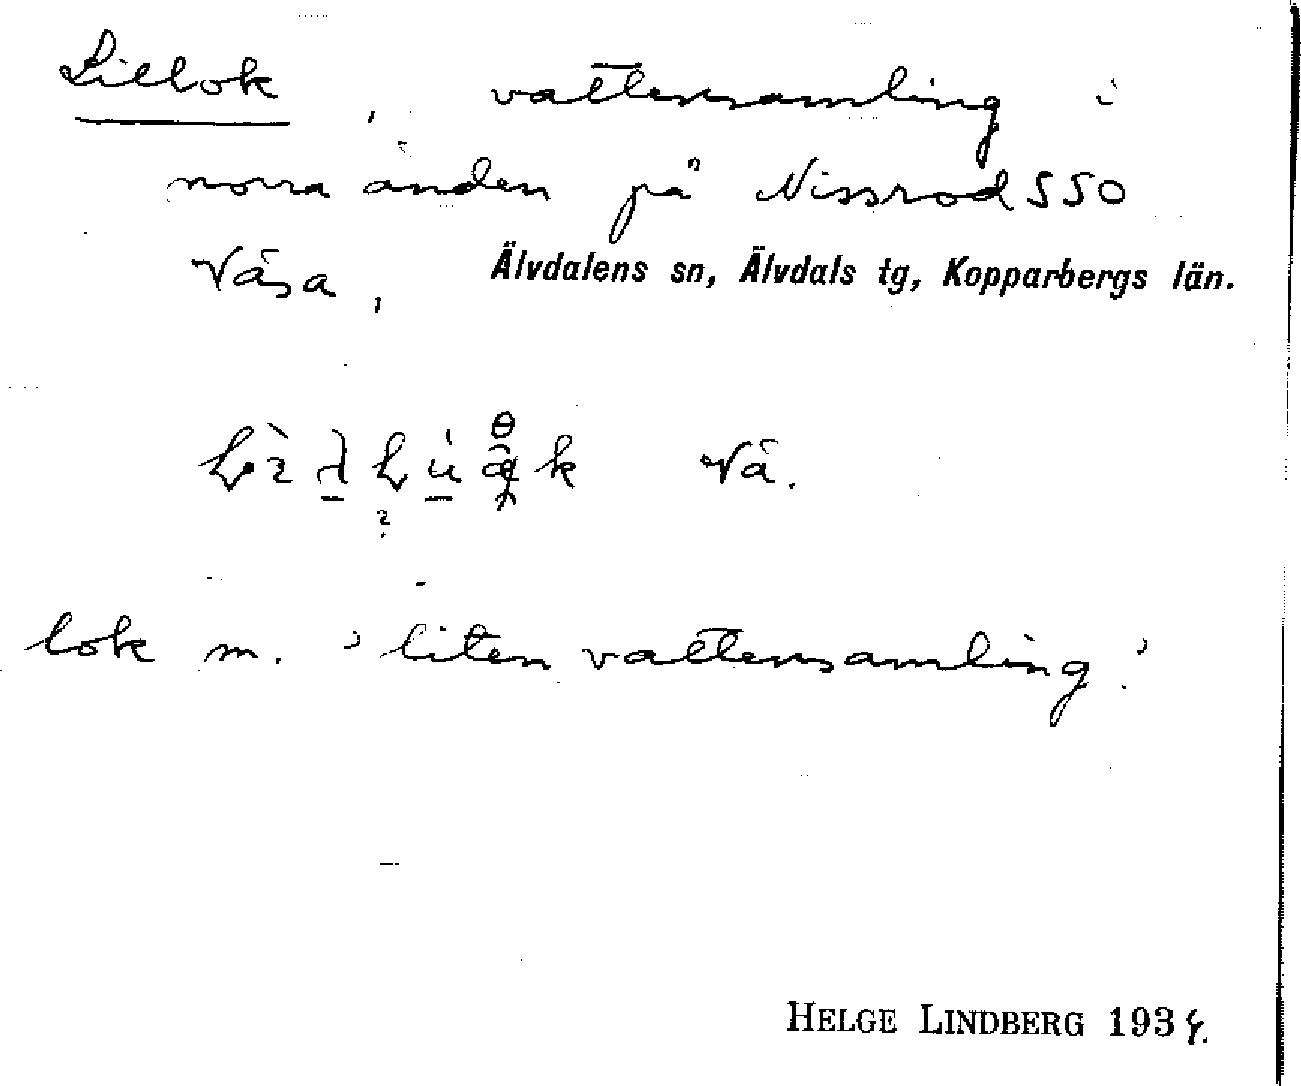 Lillok, vattensamling i
norra änden på Nissrod SSO
Våsa, Älvdalens sn, Älvdals tg, Kopparbergs län.
Vå.
lok m. 'liten vattensamling.'
HELGE LINDBERG 193